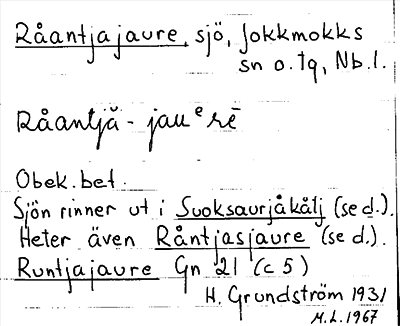 Råantjajaure, sjö, Jokkmokks
sn o. tg, Nb.l.
Råantjă - jauᵉrē
Obek. bet.
Sjön rinner ut i Suoksaurjåkåtj (se d.).
Heter även Råntjasjaure (se d.).
Runtjajaure Gn 21 (c 5)
H. Grundström 1931
M.L. 1967